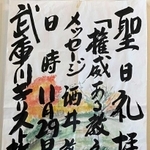 聖日礼拝
「権威あ教え
メッセージ 酒井
日時 11月29日
武庫川キリスト